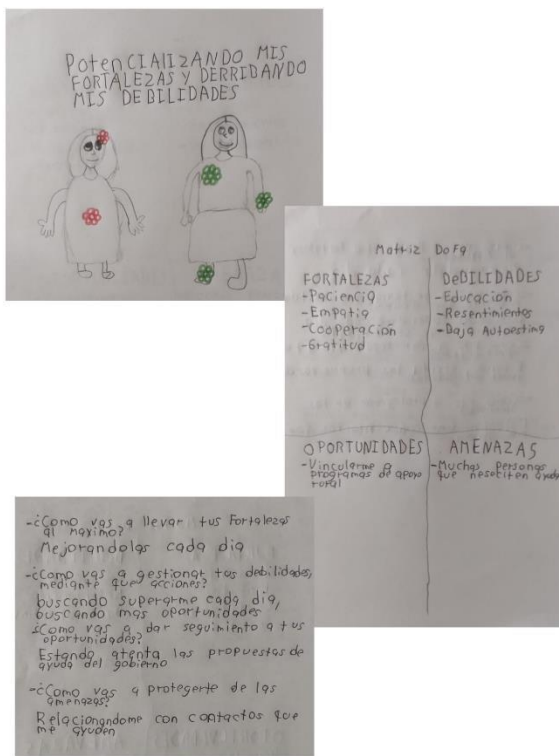 PotenCIALIZANDO MIS
FORTALEZAS Y DERRIBANDO
MIS DEBILIDADES
Matriz DoFa
FORTALEZAS
-Paciencia
-Empatia
-Cooperación
-Gratitud
DeBILIDADES
-Educación
-Resentimientos
-Baja Autoestima
OPORTUNIDADES
-Vincularme a
programas de apoyo
rural
AMENAZAS
-Muchas personas
que nesesiten ayuda
-¿Como vas a llevar tus Fortalezas
al maximo?
Mejorandolas cada dia
-¿Como vas a gestionar tus debilidades,
mediante que acciones?
buscando superarme cada dia,
buscando mas oportunidades
¿Como vas a dar seguimiento a tus
oportunidades?
Estando atenta las propuestas de
ayuda del gobierno
-¿Como vas a protegerte de las
amenazas?
Relacionandome con contactos que
me ayuden